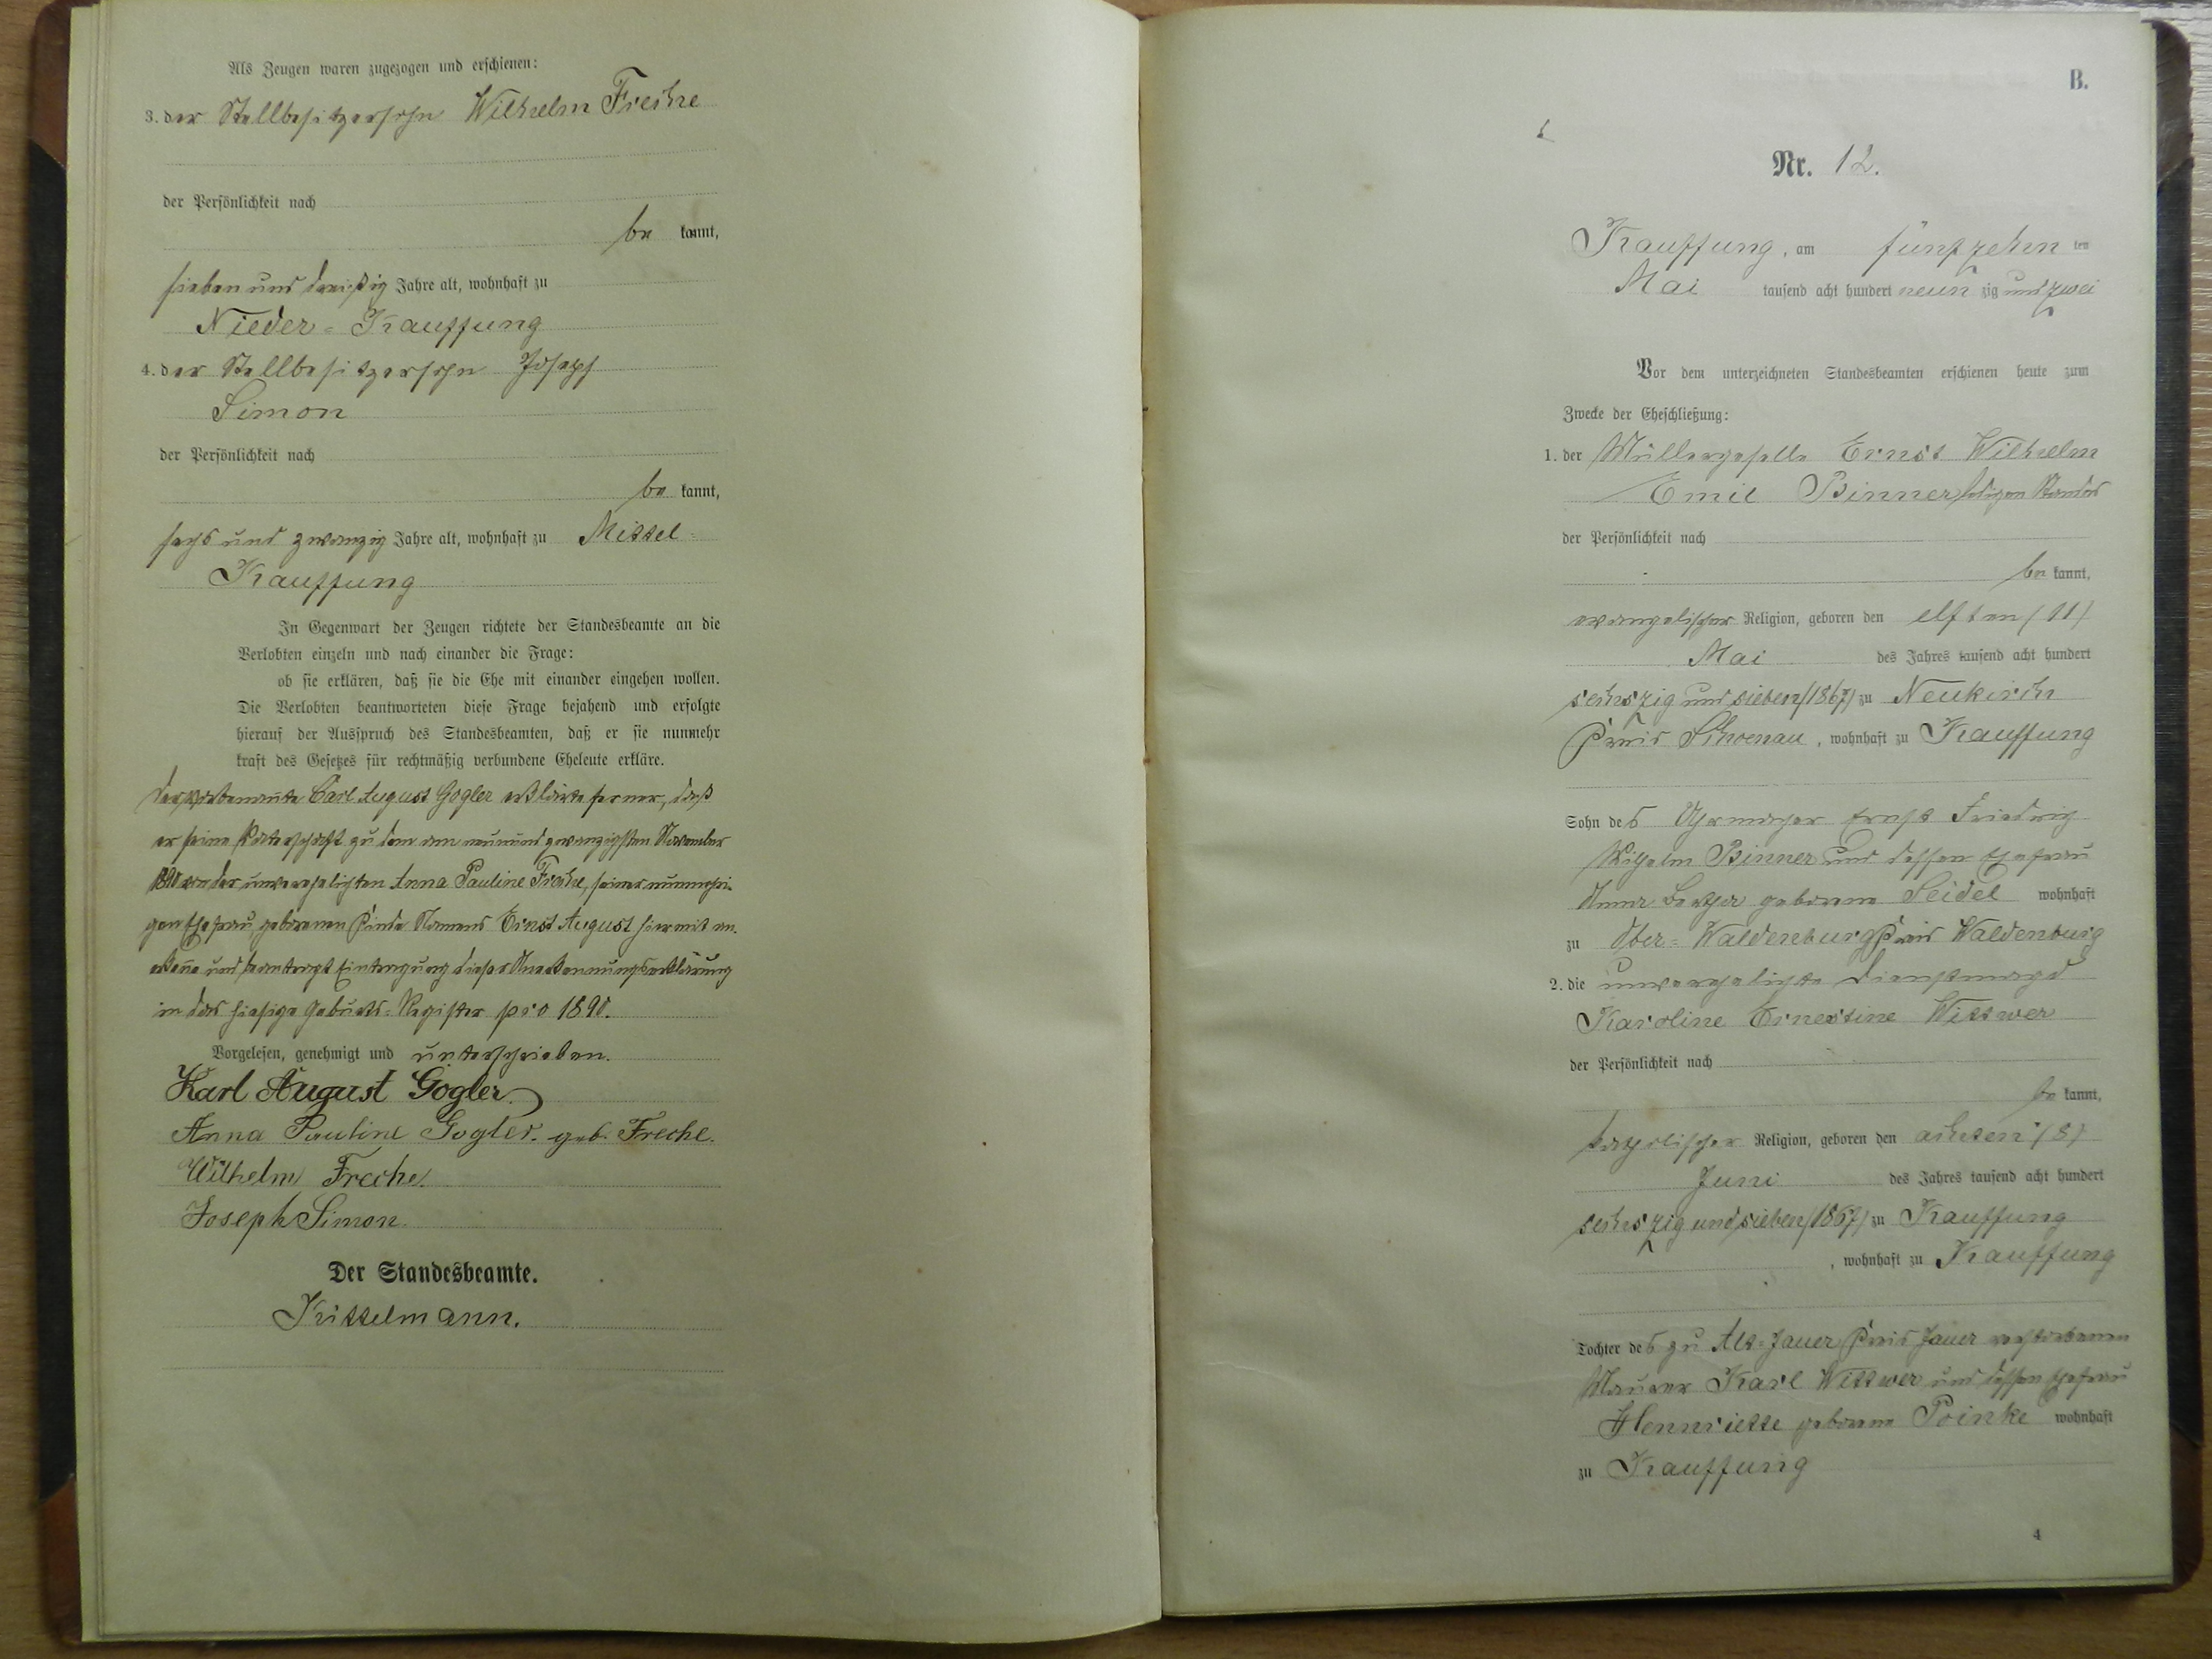 Als Zeugen waren zugezogen und erschienen:
3. der Stellbesitzersohn Wilhelm Freche
der Persönlichkeit nach
be kannt,
sieben und dreißig Jahre alt, wohnhaft zu
Nieder-Kauffung
4. der Stellbesitzersohn Joseph
Simon
der Persönlichkeit nach
be kannt,
sechs und zwanzig Jahre alt, wohnhaft zu Mittel-
Kauffung
In Gegenwart der Zeugen richtete der Standesbeamte an die
Verlobten einzeln und nach einander die Frage:
ob sie erklären, daß sie die Ehe mit einander eingehen wollen.
Die Verlobten beantworteten diese Frage bejahend und erfolgte
hierauf der Ausspruch des Standesbeamten, daß er sie nunmehr
kraft des Gesetzes für rechtmäßig verbundene Eheleute erkläre.
Der vorbenannte Carl August Gogler erklärte ferner, daß
er seine Vaterschaft zu dem am neunundzwanzigsten November
1890 von der unverehelichten Anna Pauline Freche, seiner nunmehri-
gen Ehefrau, geborenen Kinde Namens Ernst August hiermit an-
erkenne und beantragt Eintragung dieser Anerkennungserklärung
in das hiesige Geburts-Register pro 1890.
Vorgelesen, genehmigt und unterschrieben.
Karl August Gogler
Anna Pauline Gogler. geb. Freche.
Wilhelm Freche.
Joseph Simon.
Der Standesbeamte.
Kittelmann.
B.
Nr. 12.
Kauffung, am fünfzehn ten
Mai tausend acht hundert neun zig und zwei
Vor dem unterzeichneten Standesbeamten erschienen heute zum
Zwecke der Eheschließung:
1. der Müllergeselle Ernst Wilhelm
Emil Binner ledigen Standes
der Persönlichkeit nach
be kannt,
evangelischer Religion, geboren den elften (11)
Mai des Jahres tausend acht hundert
sechszig und sieben (1867) zu Neukirch
Kreis Schoenau, wohnhaft zu Kauffung
Sohn des Uhrmacher Ernst Friedrich
Wilhelm Binner und dessen Ehefrau
Anna geborene Seidel wohnhaft
zu Ober-Waldenburg Kreis Waldenburg
2. die unverehelichte Dienstmagd
Karoline Ernestine Wittwer
der Persönlichkeit nach
be kannt,
katholischer Religion, geboren den achten (8)
Juni des Jahres tausend acht hundert
sechszig und sieben (1867) zu Kauffung
, wohnhaft zu Kauffung
Tochter des zu Alt-Jauer Kreis Jauer verstorbenen
Maurer Karl Wittwer und dessen Ehefrau
Hennriette geborene Poinke wohnhaft
zu Kauffung
4